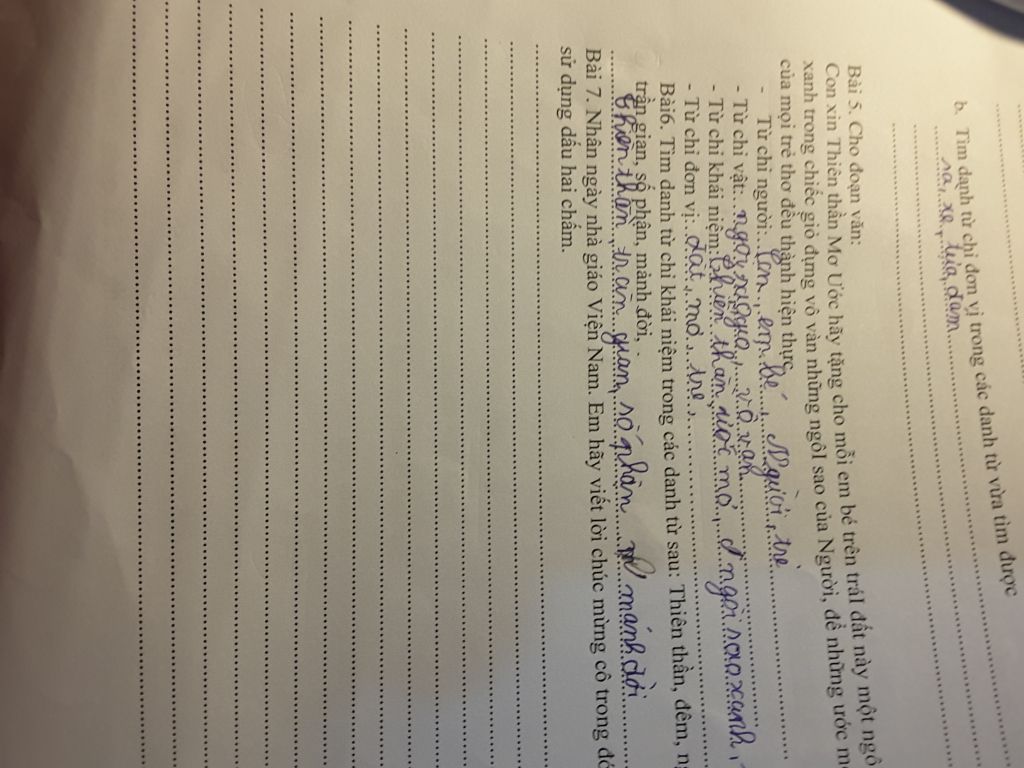 b. Tìm danh từ chỉ đơn vị trong các danh từ vừa tìm được
sa, xe, lúa, đam
Bài 5. Cho đoạn văn:
Con xin Thiên thần Mơ Ước hãy tặng cho mỗi em bé trên trái đất này một ngô
xanh trong chiếc giỏ đựng vô vàn những ngôi sao của Người, để những ước mơ
của mọi trẻ thơ đều thành hiện thực
- Từ chỉ người: Con, em bé, Người, trẻ
- Từ chỉ vật:
- Từ chỉ khái niệm: thiên thần, ước mơ, ngôi sao xanh,
- Từ chỉ đơn vị: đất, mơ, tre,
Bài6. Tìm danh từ chỉ khái niệm trong các danh từ sau: Thiên thần, đêm, n
trần gian, số phận, mảnh đời,
thiên thần, trần gian, số phận, mảnh đời
Bài 7. Nhân ngày nhà giáo Việt Nam. Em hãy viết lời chúc mừng cô trong đó
sử dụng dấu hai chấm.